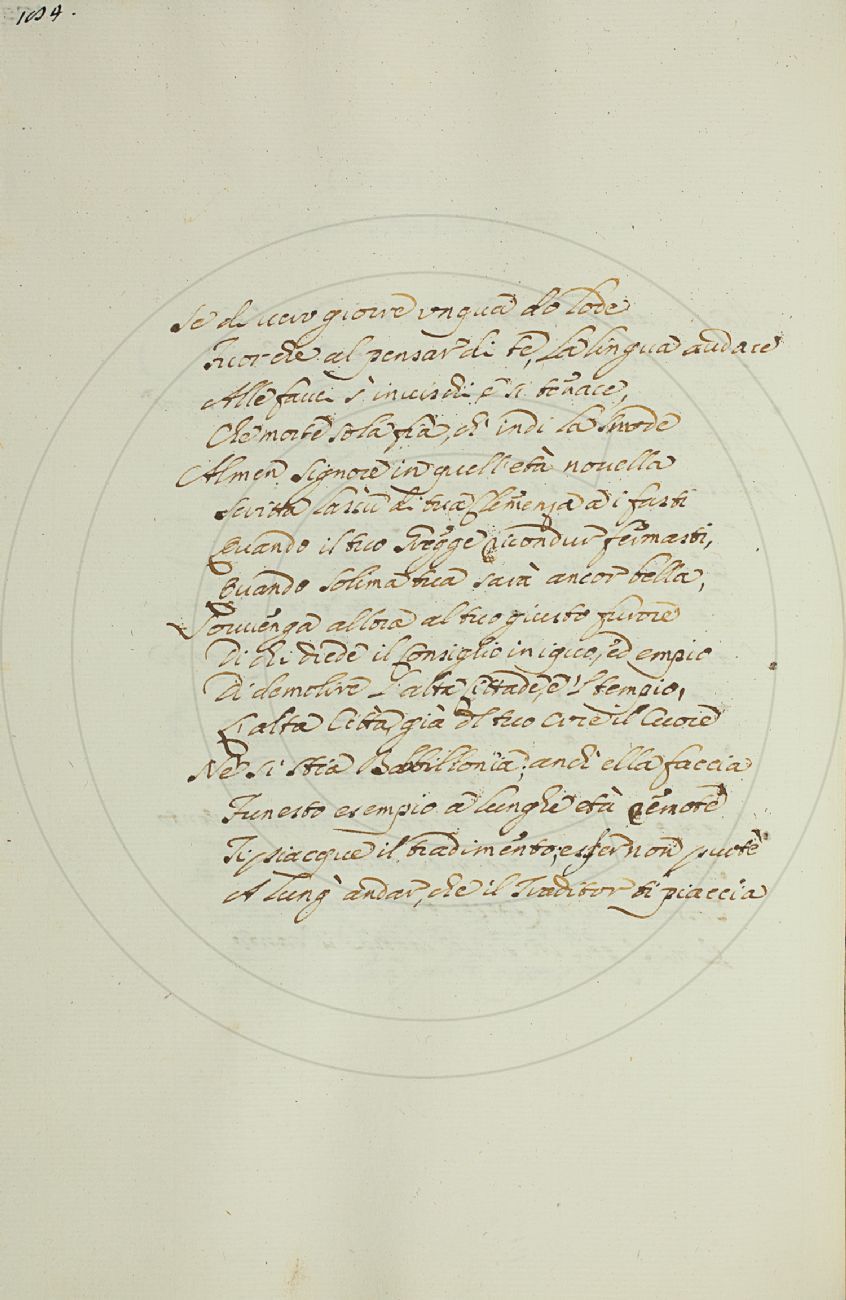 1094.
Se di vero gioire unqua do lode
Fuor che al pensar di te, La lingua audace
Alle fauci s'invischi, e si tenace,
Che morte sola fia, ch' indi La snode
Almen Signore in quell'età novella
Scritta Lassù di tua Clemenza a i fasti
Quando il tuo Gregge ricondur fermasti,
Quando Solima tua sarà ancor bella,
Sovvenga allora al tuo giusto furore
Di chi diede il Consiglio iniquo, ed empio
Di demolire L'alta Cittade, e 'l tempio,
L'alta Città, già del tuo Core il Cuore
Ne si stia Babbilionia; anchi ella faccia
Funesto esempio a lunghe età remote
Ti piacque il tradimento; esser non puote
A lung' andar, che il Traditor ti piaccia